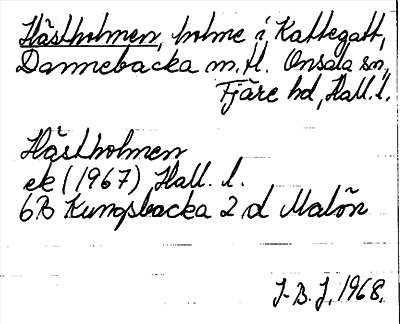 Hästholmen, holme i Kattegatt,
Dannebacka m.fl. Onsala sn,
Fjäre hd, Hall. l.
Hästholmen
ek (1967) Hall. l.
6B Kungsbacka 2 d Malön
J-B. J. 1968.